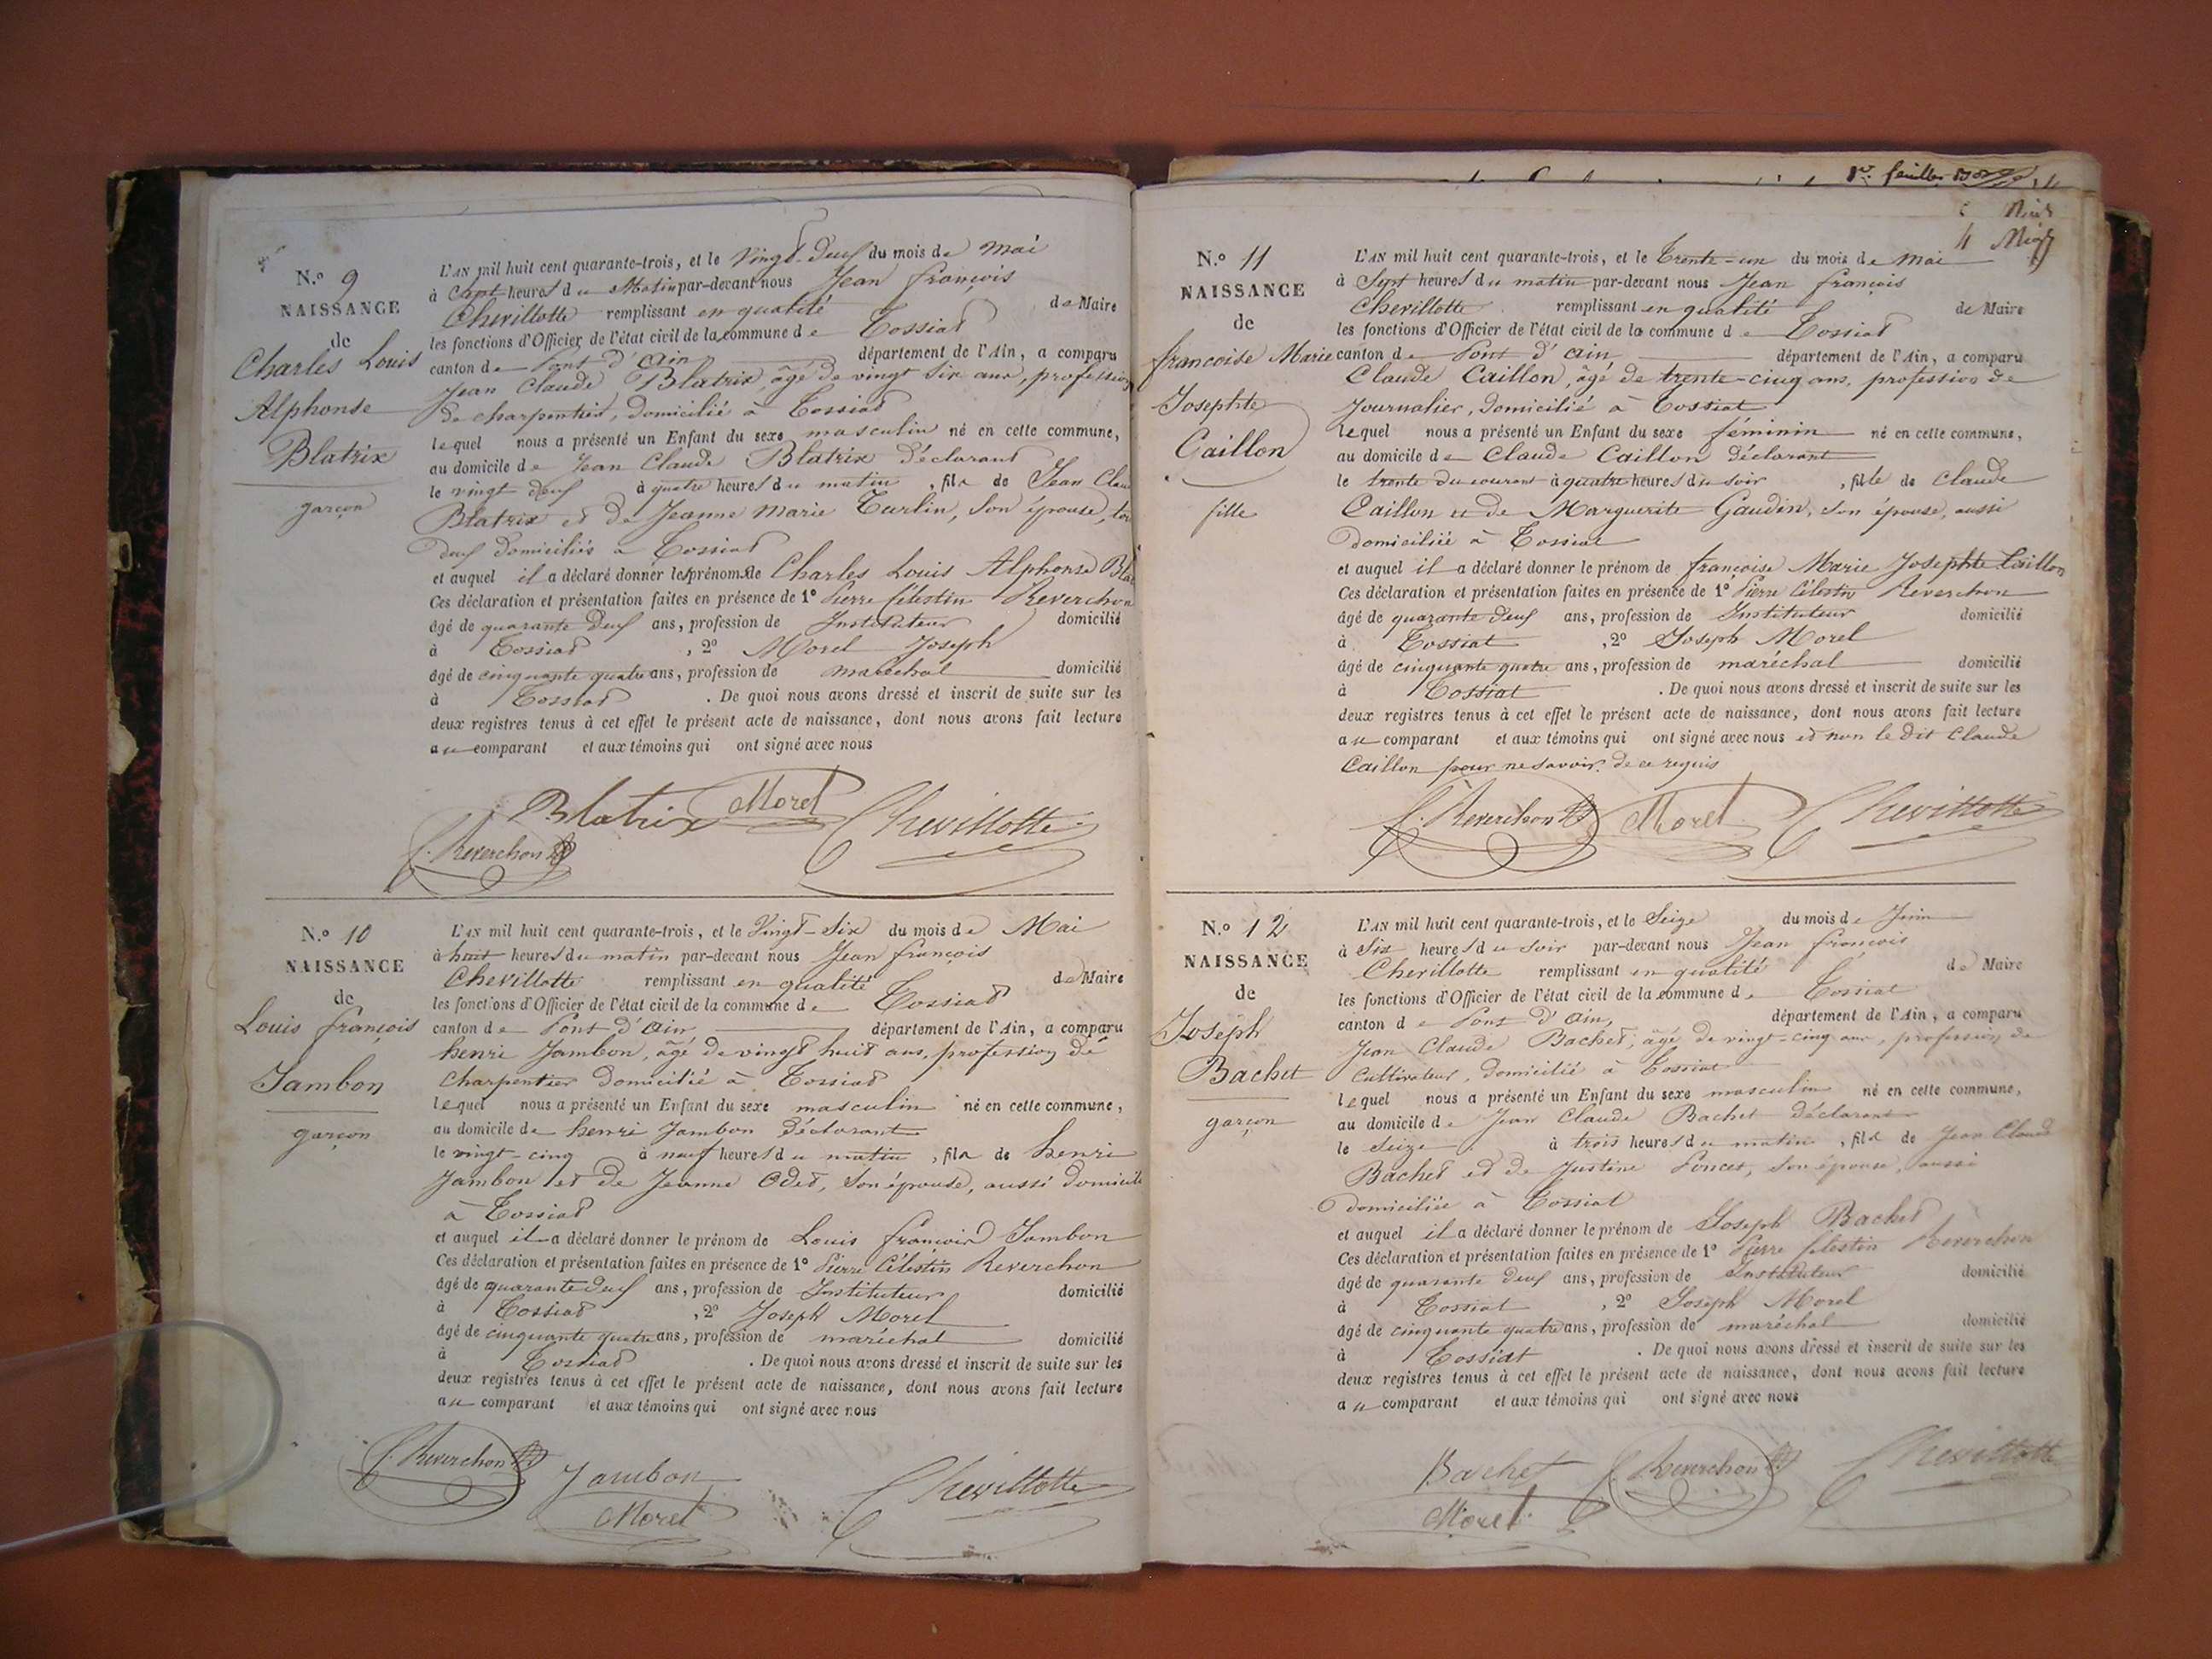 N.º 9
NAISSANCE
de
Charles Louis
Alphonse
Blatrix
garçon
L'AN mil huit cent quarante-trois, et le Vingt-Deux du mois de Mai
à Sept heures du Matin par-devant nous Jean françois
Chevillotte remplissant en qualité de Maire
les fonctions d'Officier de l'état civil de la commune de Tossiat
canton de Pont d'ain département de l'Ain, a comparu
Jean Claude Blatrix, âgé de vingt six ans, profession
de charpentier, domicilié à Tossiat
lequel nous a présenté un Enfant du sexe masculin né en cette commune,
au domicile de Jean Claude Blatrix Déclarant
le vingt deux à quatre heures du matin, fils de Jean Clau
Blatrix et de Jeanne Marie Turlin, Son épouse, tou
deux Domiciliés à Tossiat
et auquel il a déclaré donner les prénoms de Charles Louis Alphonse Bla
Ces déclaration et présentation faites en présence de 1º Pierre Célestin Reverchon
âgé de quarante Deux ans, profession de Instituteur domicilié
à Tossiat, 2º Morel Joseph
âgé de cinquante quatre ans, profession de maréchal domicilié
à Tossiat. De quoi nous avons dressé et inscrit de suite sur les
deux registres tenus à cet effet le présent acte de naissance, dont nous avons fait lecture
au comparant et aux témoins qui ont signé avec nous
Blatrix Morel Chevillotte
C. Reverchon
N.º 10
NAISSANCE
de
Louis françois
Jambon
garçon
L'AN mil huit cent quarante-trois, et le Vingt-Six du mois de Mai
à huit heures du matin par-devant nous Jean françois
Chevillotte remplissant en qualité de Maire
les fonctions d'Officier de l'état civil de la commune de Tossiat
canton de Pont d'ain département de l'Ain, a comparu
henri Jambon, âgé de vingt huit ans, profession de
Charpentier Domicilié à Tossiat
lequel nous a présenté un Enfant du sexe masculin né en cette commune,
au domicile de henri Jambon Déclarant
le vingt-cinq à neuf heures du matin, fils de henri
Jambon et de Jeanne Odet, Son épouse, aussi domicilié
à Tossiat
et auquel il a déclaré donner le prénom de Louis françois Jambon
Ces déclaration et présentation faites en présence de 1º Pierre Célestin Reverchon
âgé de quarante Deux ans, profession de Instituteur domicilié
à Tossiat, 2º Joseph Morel
âgé de cinquante quatre ans, profession de maréchal domicilié
à Tossiat. De quoi nous avons dressé et inscrit de suite sur les
deux registres tenus à cet effet le présent acte de naissance, dont nous avons fait lecture
au comparant et aux témoins qui ont signé avec nous
C. Reverchon Jambon Chevillotte
Morel
feuillet
N.º 11
NAISSANCE
de
francoise Marie
Josephte
Caillon
fille
L'AN mil huit cent quarante-trois, et le Trente-un du mois de Mai
à Sept heures du matin par-devant nous Jean françois
Chevillotte remplissant en qualité de Maire
les fonctions d'Officier de l'état civil de la commune de Tossiat
canton de Pont d'ain département de l'Ain, a comparu
Claude Caillon, âgé de trente-cinq ans, profession de
Journalier, Domicilié à Tossiat
lequel nous a présenté un Enfant du sexe féminin né en cette commune,
au domicile de Claude Caillon Déclarant
le trente du courant à quatre heures du soir, fille de Claude
Caillon et de Marguerite Gaudin, Son épouse, aussi
Domiciliée à Tossiat
et auquel il a déclaré donner le prénom de françoise Marie Josephte Caillon
Ces déclaration et présentation faites en présence de 1º Pierre Célestin Reverchon
âgé de quarante Deux ans, profession de Instituteur domicilié
à Tossiat, 2º Joseph Morel
âgé de cinquante quatre ans, profession de maréchal domicilié
à Tossiat. De quoi nous avons dressé et inscrit de suite sur les
deux registres tenus à cet effet le présent acte de naissance, dont nous avons fait lecture
au comparant et aux témoins qui ont signé avec nous et non le dit Claude
Caillon pour ne savoir. de ce requis
C. Reverchon Morel Chevillotte
N.º 12
NAISSANCE
de
Joseph
Bachet
garçon
L'AN mil huit cent quarante-trois, et le Seize du mois de Juin
à Six heures du Soir par-devant nous Jean françois
Chevillotte remplissant en qualité de Maire
les fonctions d'Officier de l'état civil de la commune de Tossiat
canton de Pont d'ain, département de l'Ain, a comparu
Jean Claude Bachet, âgé de vingt-cinq ans, profession de
Cultivateur, Domicilié à Tossiat
lequel nous a présenté un Enfant du sexe masculin né en cette commune,
au domicile de Jean Claude Bachet déclarant
le Seize à trois heures du matin, fils de Jean Claude
Bachet et de Justine Poncet, Son épouse, aussi
Domiciliée à Tossiat
et auquel il a déclaré donner le prénom de Joseph Bachet
Ces déclaration et présentation faites en présence de 1º Pierre Célestin Reverchon
âgé de quarante Deux ans, profession de Instituteur domicilié
à Tossiat, 2º Joseph Morel
âgé de cinquante quatre ans, profession de maréchal domicilié
à Tossiat. De quoi nous avons dressé et inscrit de suite sur les
deux registres tenus à cet effet le présent acte de naissance, dont nous avons fait lecture
au comparant et aux témoins qui ont signé avec nous
Bachet C. Reverchon Chevillotte
Morel